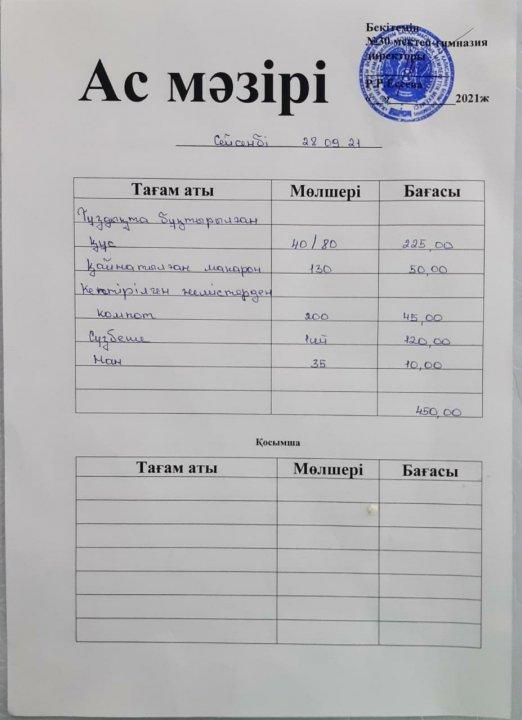 Бекітемін
№30 мектеп-гимназия
директоры
Р.Р.Есеева
2021ж
Ас мәзірі
Сейсенбі 28 09 21
Тағам аты Мөлшері Бағасы
Тұздықта бұқтырылған
құс 40/80 225,00
Қайнатылған макарон 130 50,00
Кептірілген жемістерден
компот 200 45,00
Сүзбеше 1 120,00
Нан 35 10,00
450,00
Қосымша
Тағам аты Мөлшері Бағасы